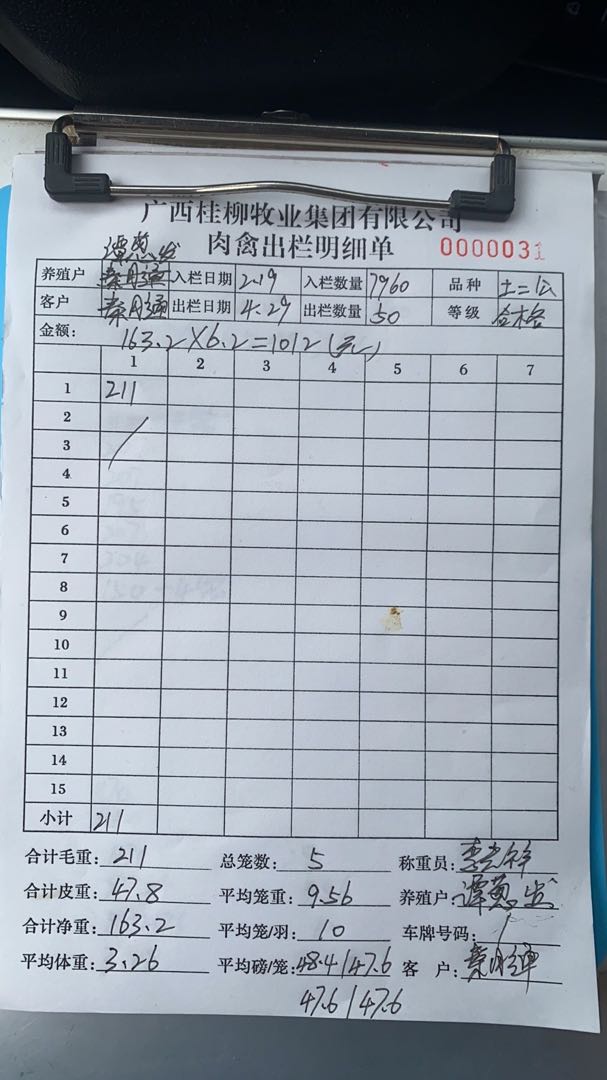 广西桂柳牧业集团有限公司
肉禽出栏明细单 0000031
谭葱发
养殖户 入栏日期 2.19 入栏数量 7960 品种 土二公
客户 出栏日期 4.29 出栏数量 50 等级 合格
金额: 163.2×6.2=1012(元)
1 2 3 4 5 6 7
1 211
2
3
4
5
6
7
8
9
10
11
12
13
14
15
小计 211
合计毛重: 211 总笼数: 5 称重员:
合计皮重: 47.8 平均笼重: 9.56 养殖户: 谭葱发
合计净重: 163.2 平均笼/羽: 10 车牌号码: /
平均体重: 3.26 平均磅/笼: 48.4/47.6 客 户:
47.6/47.6